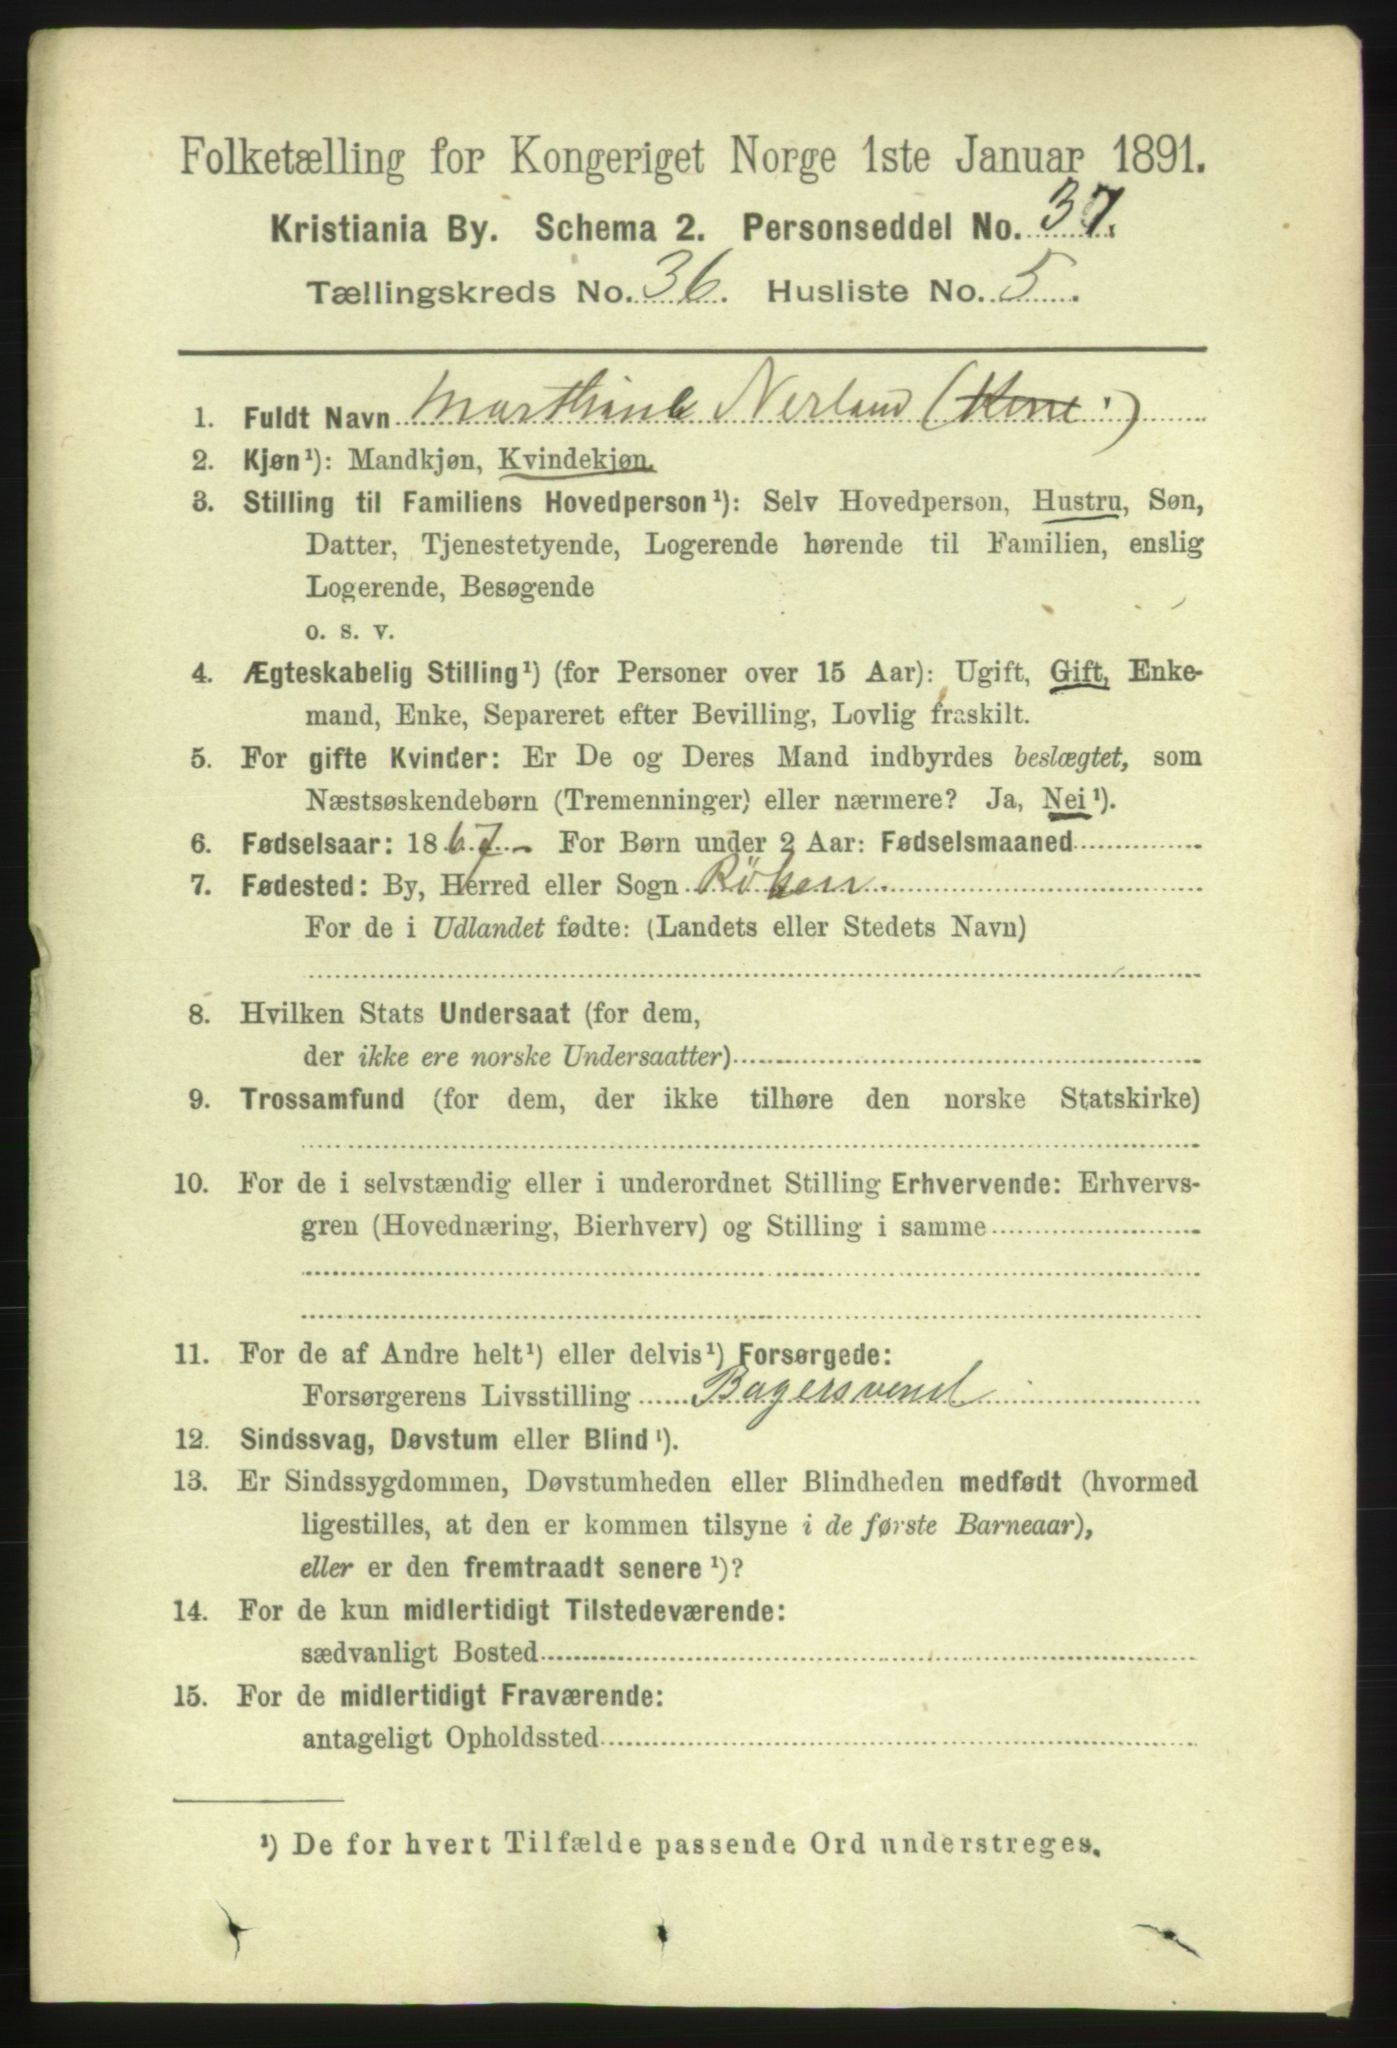 Folketælling for Kongeriget Norge 1ste Januar 1891.
Kristiania By. Schema 2. Personseddel No. 37.
Tællingskreds No. 36. Husliste No. 5.
1. Fuldt Navn Marthine Nerland (Kone)
2. Kjøn¹): Mandkjøn, Kvindekjøn.
3. Stilling til Familiens Hovedperson¹): Selv Hovedperson, Hustru, Søn,
Datter, Tjenestetyende, Logerende hørende til Familien, enslig
Logerende, Besøgende
o. s. v.
4. Ægteskabelig Stilling¹) (for Personer over 15 Aar): Ugift, Gift, Enke-
mand, Enke, Separeret efter Bevilling, Lovlig fraskilt.
5. For gifte Kvinder: Er De og Deres Mand indbyrdes beslægtet, som
Næstsøskendebørn (Tremenninger) eller nærmere? Ja, Nei¹).
6. Fødselsaar: 1867. For Børn under 2 Aar: Fødselsmaaned
7. Fødested: By, Herred eller Sogn Röken
For de i Udlandet fødte: (Landets eller Stedets Navn)
8. Hvilken Stats Undersaat (for dem,
der ikke ere norske Undersaatter)
9. Trossamfund (for dem, der ikke tilhøre den norske Statskirke)
10. For de i selvstændig eller i underordnet Stilling Erhvervende: Erhvervs-
gren (Hovednæring, Bierhverv) og Stilling i samme
11. For de af Andre helt¹) eller delvis¹) Forsørgede:
Forsørgerens Livsstilling Bagersvend
12. Sindssvag, Døvstum eller Blind¹).
13. Er Sindssygdommen, Døvstumheden eller Blindheden medfødt (hvormed
ligestilles, at den er kommen tilsyne i de første Barneaar),
eller er den fremtraadt senere¹)?
14. For de kun midlertidigt Tilstedeværende:
sædvanligt Bosted
15. For de midlertidigt Fraværende:
antageligt Opholdssted
¹) De for hvert Tilfælde passende Ord understreges.